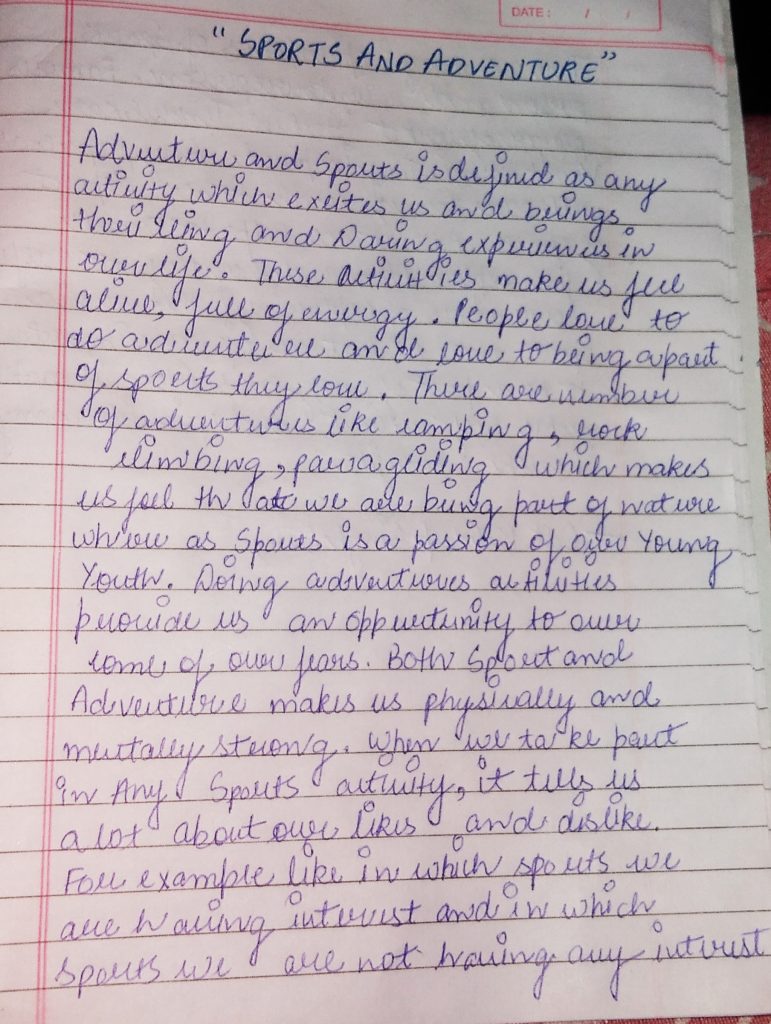 DATE: / /
"SPORTS AND ADVENTURE"
Adventure and Sports is defined as any
activity which excites us and brings
thrilling and Daring experiences in
our life. These activities make us feel
alive, full of energy. People love to
do adventure and love to being a part
of sports they love. There are number
of adventures like camping, rock
climbing, paragliding which makes
us feel that we are being part of nature
where as Sports is a passion of our Young
Youth. Doing adventures activities
provide us an oppurtunity to over
come of our fears. Both Sport and
Adventure makes us physically and
mentally strong. When we take part
in Any Sports activity, it tells us
a lot about our likes and dislike.
For example like in which sports we
are having interest and in which
sports we are not having any interest